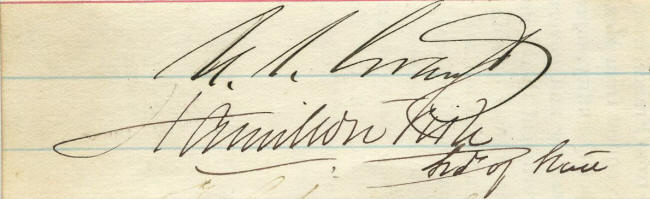 U. S. Grant
Hamilton Fish
Sec. of State